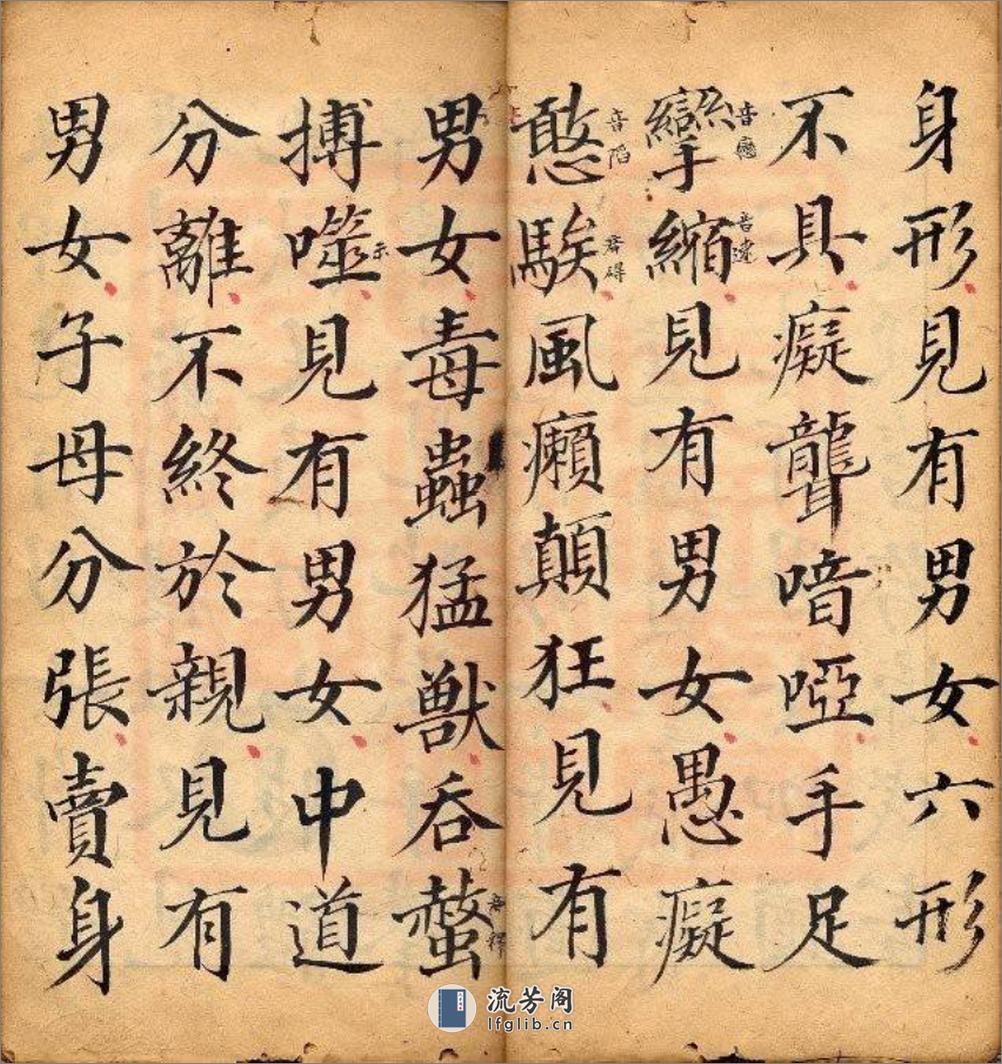 身形見有男女六形
不具癡聾喑啞手足
攣縮見有男女愚癡
音 音
憨騃風癲顛狂見有
音
男女毒蟲猛獸吞螫
搏噬見有男女中道
分離不終於親見有
男女子母分張賣身
流芳阁
lfglib.cn